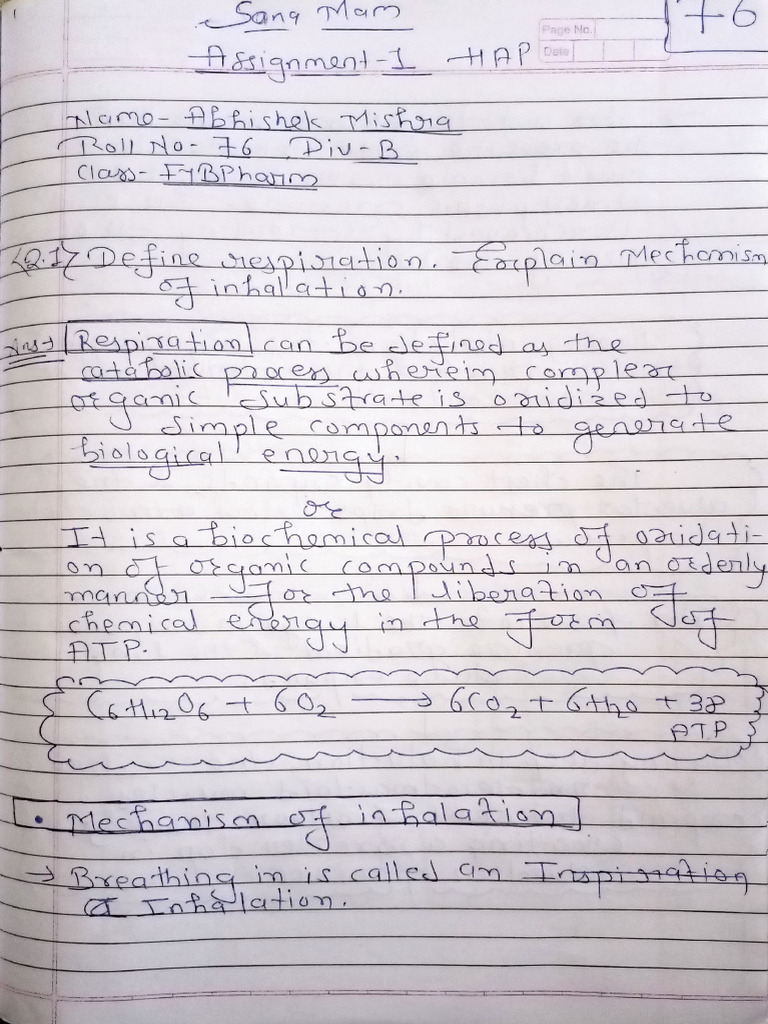 Sana Mam
76
Page No.
Date
Assignment-1 HAP
Name- Abhishek Mishra
Roll No- 76 Div-B
Class- FYBPharm
<Q.1> Define respiration. Explain Mechanism
of inhalation.
Ans→ Respiration can be defined as the
catabolic process wherein complex
organic substrate is oxidized to
simple components to generate
biological energy.
or
It is a biochemical process of oxidati-
on of organic compounds in an orderly
manner for the liberation of
chemical energy in the form of
ATP.
C6H12O6 + 6O2 → 6CO2 + 6H2O + 38
ATP
• Mechanism of inhalation
→ Breathing in is called an Inspiration
Inhalation.